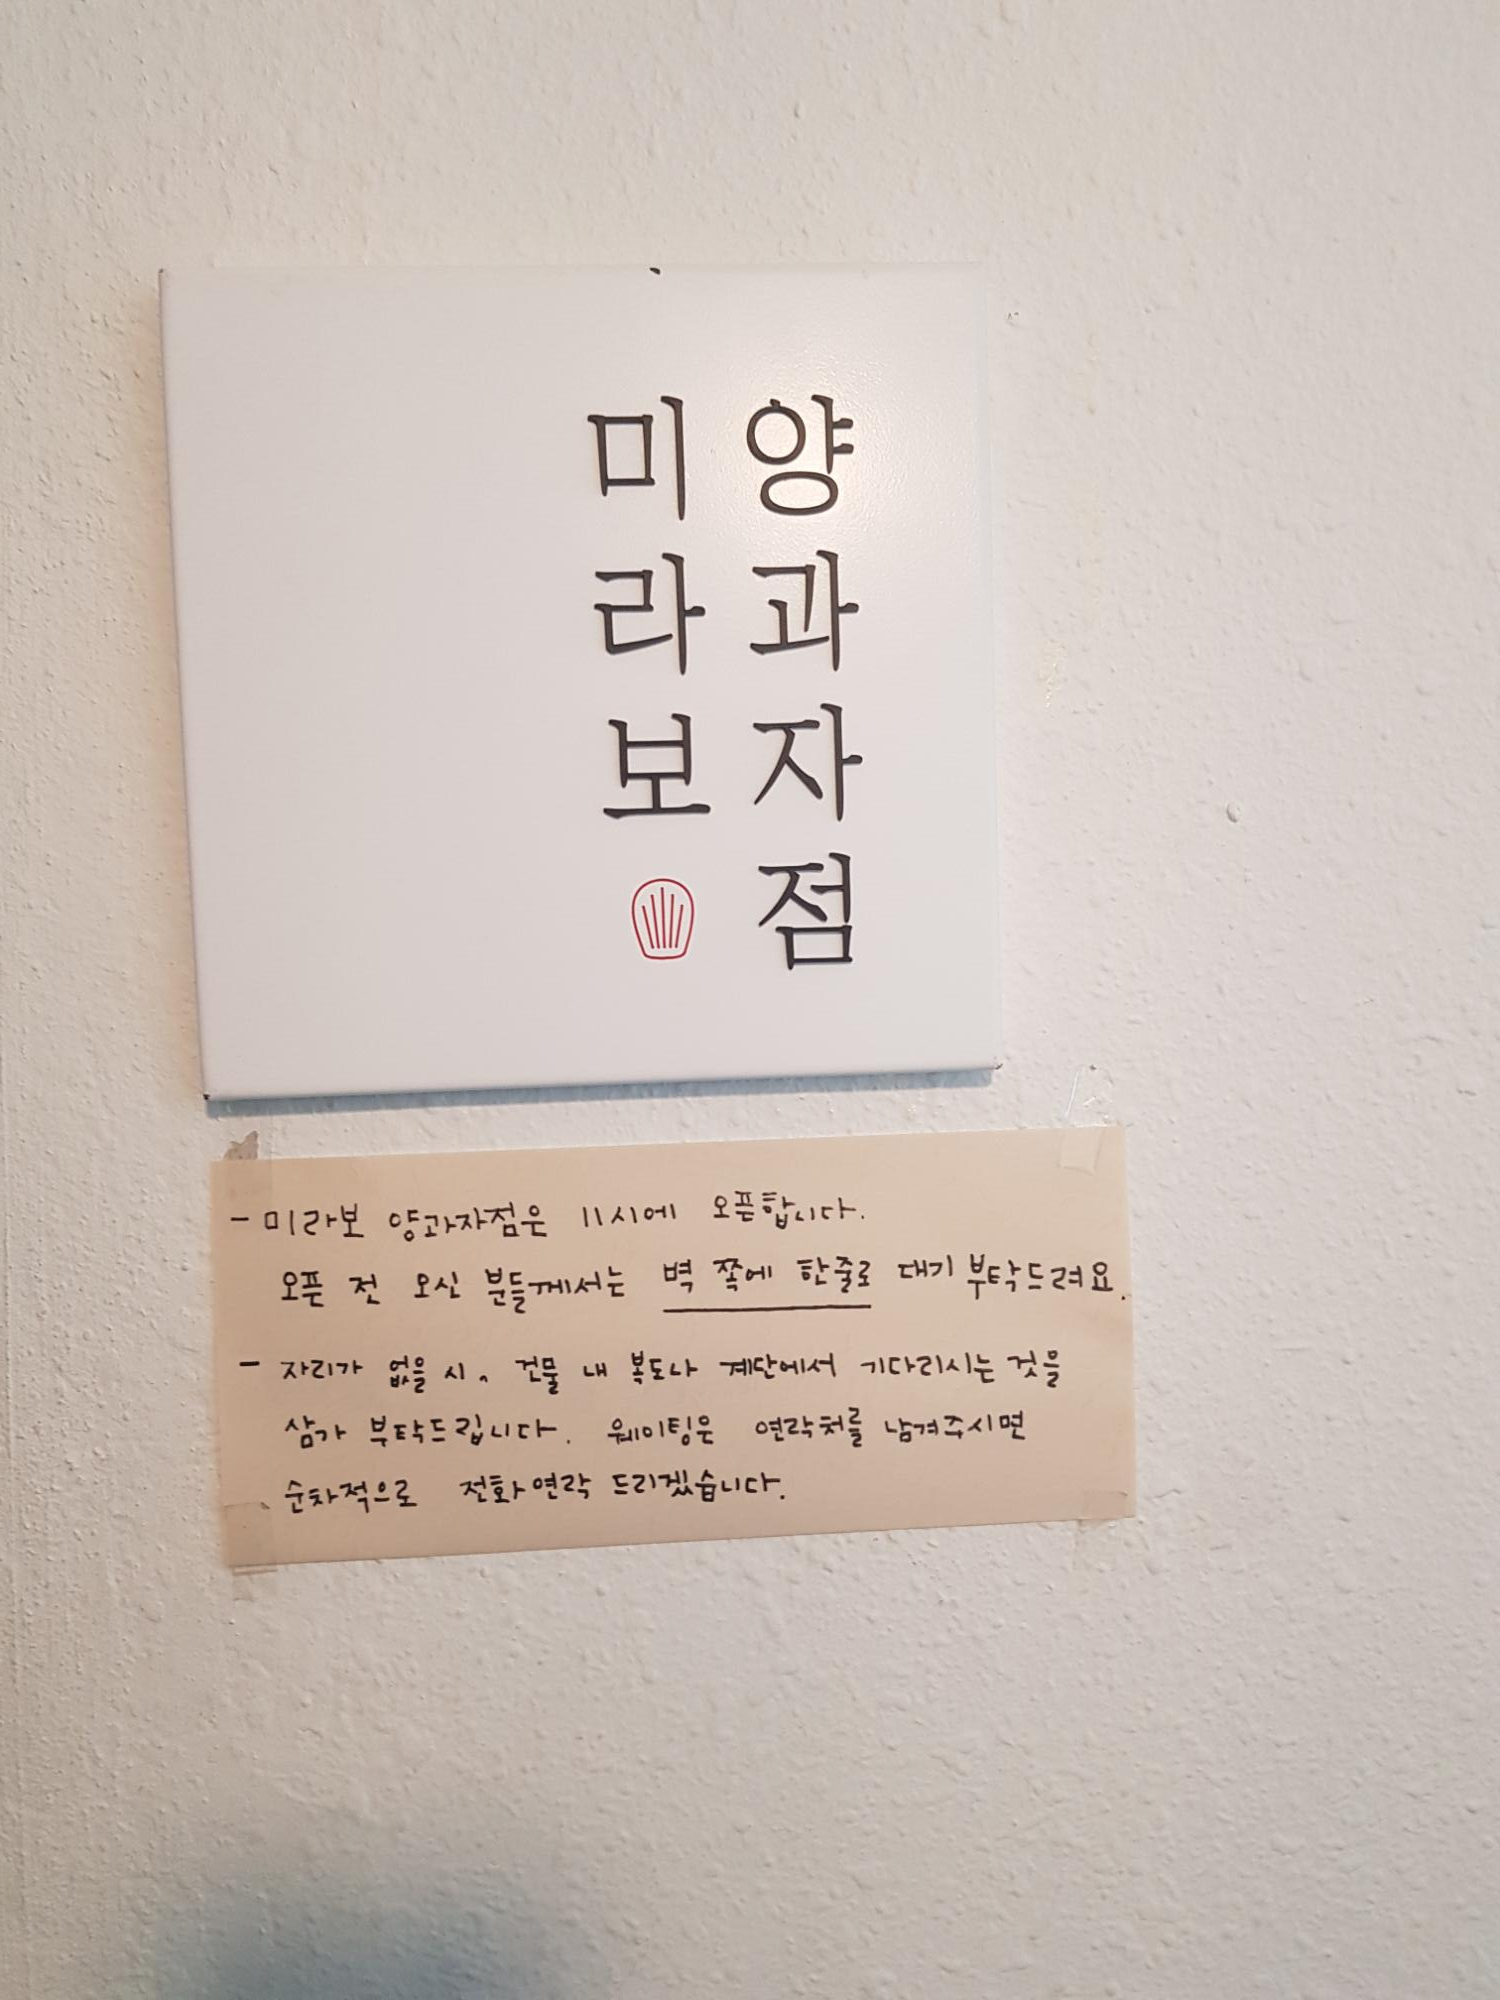 양과자점
미라보
- 미라보 양과자점은 11시에 오픈합니다.
오픈 전 오신 분들께서는 벽 쪽에 한줄로 대기 부탁드려요.
- 자리가 없을 시, 건물 내 복도나 계단에서 기다리시는 것을
삼가 부탁드립니다. 웨이팅은 연락처를 남겨주시면
순차적으로 전화연락 드리겠습니다.